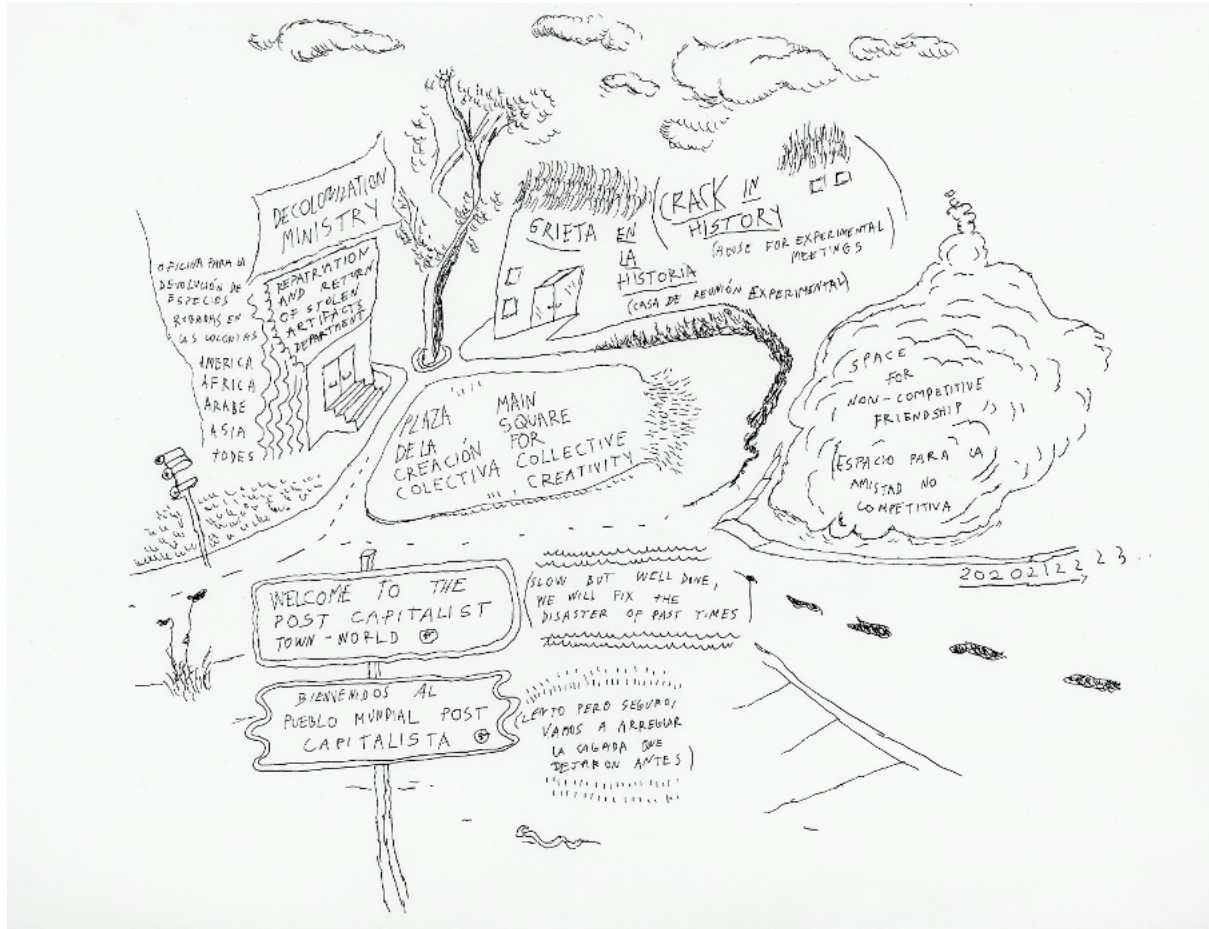 DECOLONIZATION
MINISTRY
OFICINA PARA LA
DEVOLUCIÓN DE
ESPECIES
ROBADAS EN
LAS COLONIAS
AMERICA
AFRICA
ARABE
ASIA
TODES
REPATRIATION
AND RETURN
OF STOLEN
ARTIFACTS
DEPARTMENT
GRIETA EN
LA
HISTORIA
(CASA DE REUNIÓN EXPERIMENTAL)
(CRACK IN
HISTORY
(HOUSE FOR EXPERIMENTAL
MEETINGS)
PLAZA
DE LA
CREACIÓN
COLECTIVA
MAIN
SQUARE
FOR
COLLECTIVE
CREATIVITY
SPACE
FOR
NON-COMPETITIVE
FRIENDSHIP
(ESPACIO PARA LA
AMISTAD NO
COMPETITIVA
2020 21 22 23...
WELCOME TO THE
POST CAPITALIST
TOWN-WORLD
(SLOW BUT WELL DONE,
WE WILL FIX THE
DISASTER OF PAST TIMES)
BIENVENIDOS AL
PUEBLO MUNDIAL POST
CAPITALISTA
(LENTO PERO SEGURO,
VAMOS A ARREGLAR
LA CAGADA QUE
DEJARON ANTES)